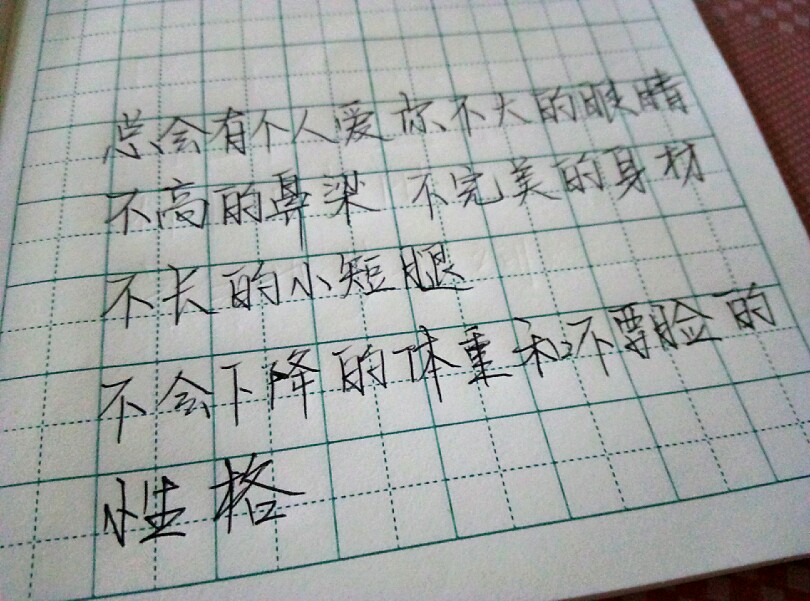 总会有个人爱你不大的眼睛
不高的鼻梁 不完美的身材
不长的小短腿
不会下降的体重和不要脸的
性格